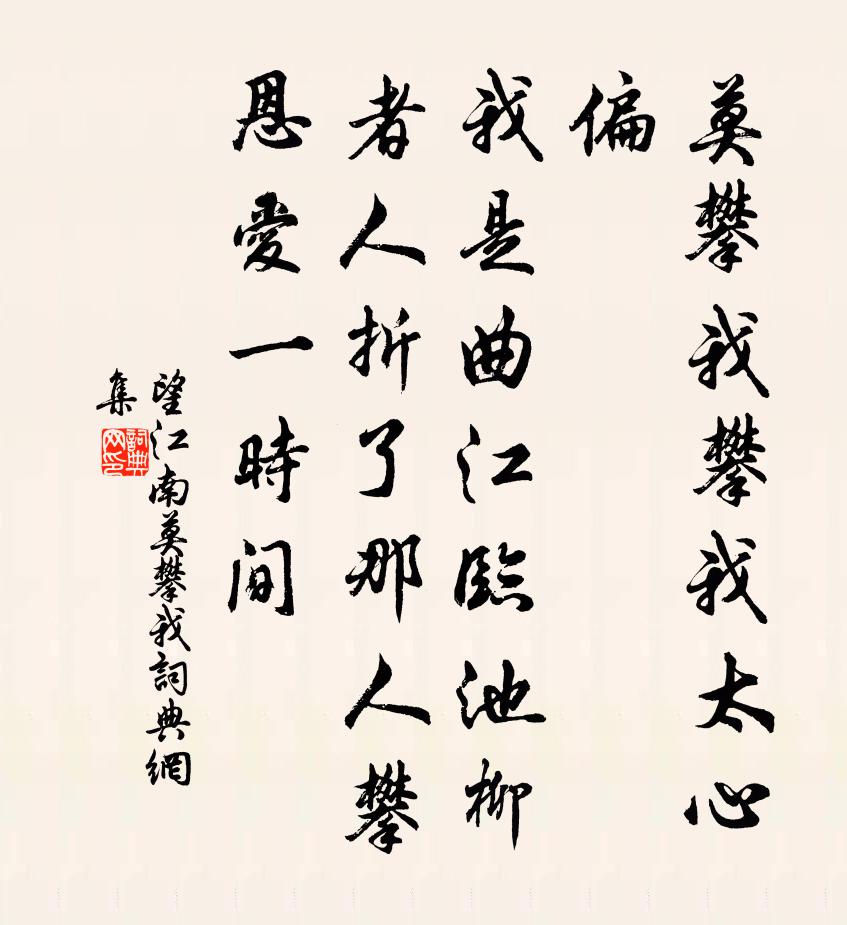 莫攀我攀我太心
偏
我是曲江臨池柳
者人折了那人攀
恩愛一時間
望江南莫攀我詞典網
集
詞典
网印